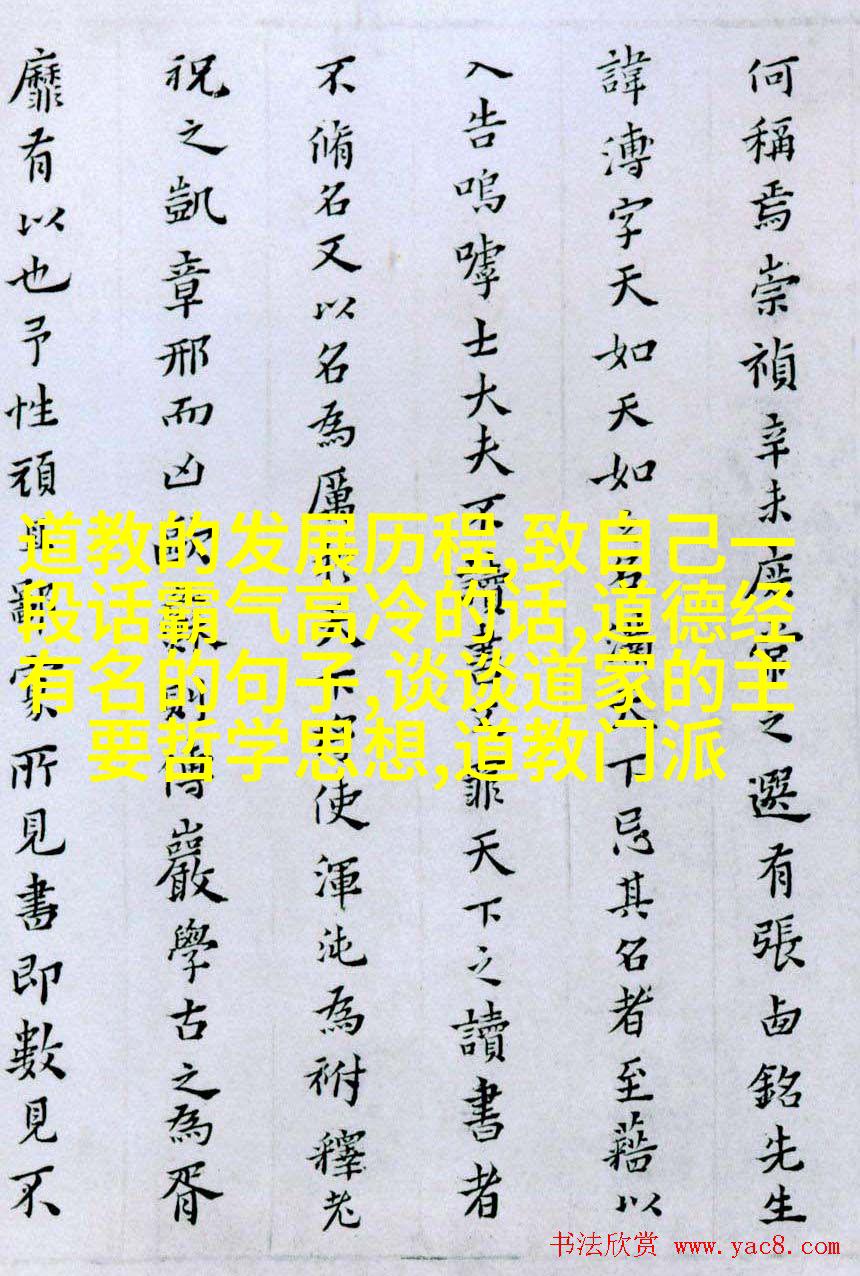 何稱焉崇禎辛未庶常之選有張卤銘先生
諱溥字天如天如之名滿天下忌其名者至藉以
入告嗚嘑士大夫不讀書罪天下之讀書者
不脩名又以名為厲使渾沌為祔釋老
祝之凱章邢而凶則傅巖學古之為胥
靡有以也予性頑所見書即數見不
道教的发展历程,致自己一
段话霸气高冷的话,道德经
有名的句子,谈谈道家的主
要哲学思想,道教门派
书法欣赏 www.yac8.com